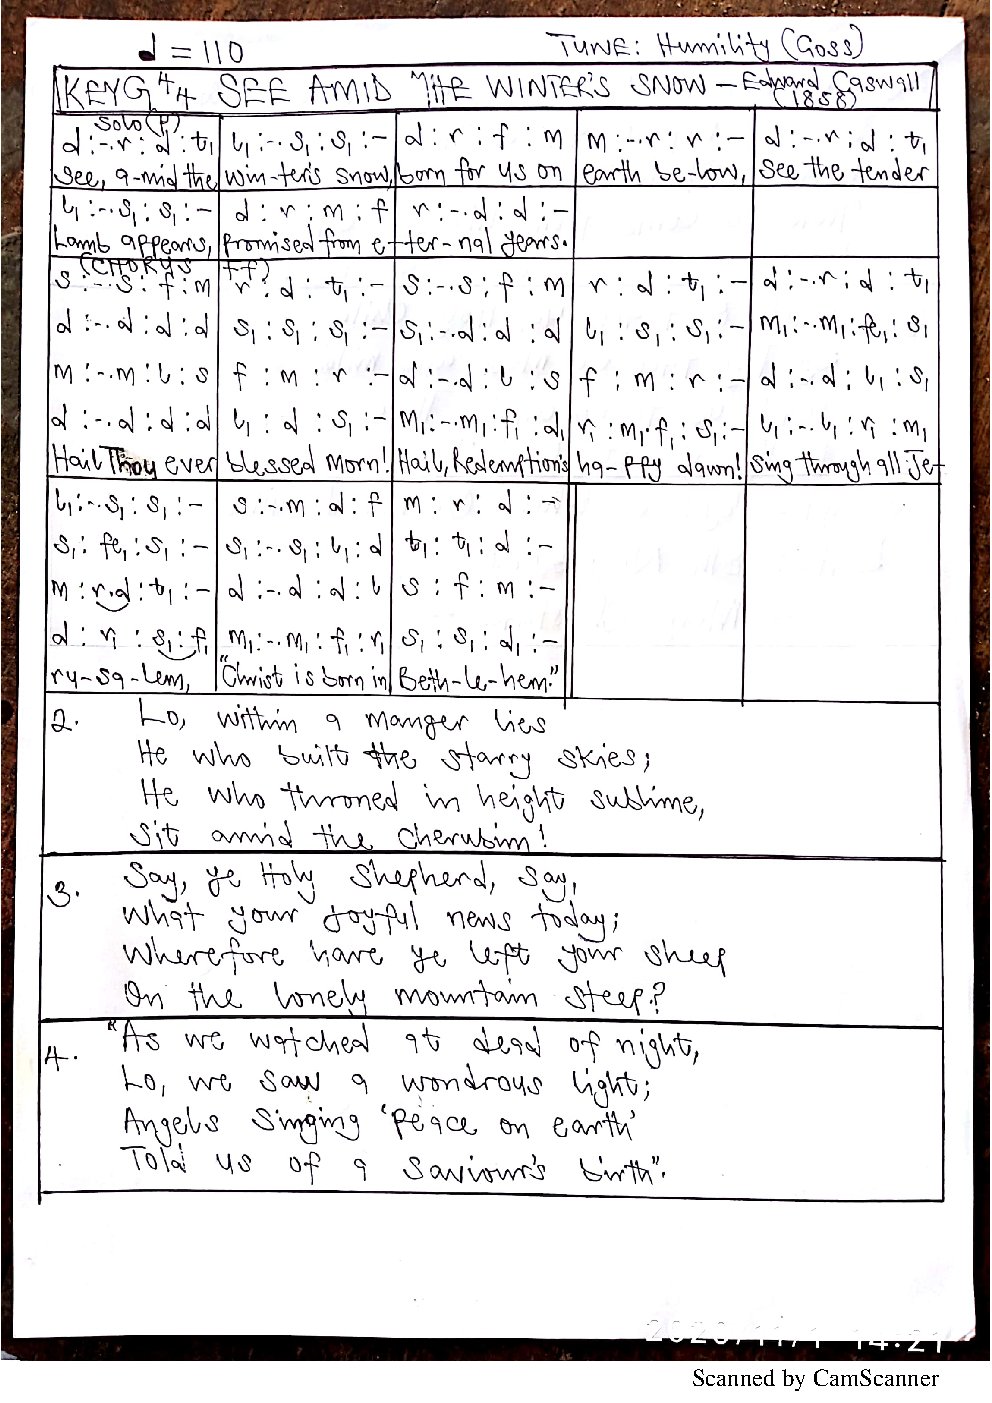 ♩ = 110 TUNE: Humility (Goss)
KEY G 4/4 SEE AMID THE WINTER'S SNOW – Edward Caswall (1858)
Solo (p)
d :-.r : d : t₁ l₁ :-.s₁ : s₁ :- d : r : f : m m :-.r : r :- d :-.r : d : t₁
See, a-mid the Win-ter's snow, born for us on earth be-low, See the tender
l₁ :-.s₁ : s₁ :- d : r : m : f r :-.d : d :-
Lamb appears, Promised from e-ter-nal years.
(CHORUS ff)
s :-.s : f : m r : d : t₁ :- s :-.s : f : m r : d : t₁ :- d :-.r : d : t₁
d :-.d : d : d s₁ : s₁ : s₁ :- s₁ :-.d : d : d l₁ : s₁ : s₁ :- m₁ :-.m₁ : fe₁ : s₁
m :-.m : l : s f : m : r :- d :-.d : l : s f : m : r :- d :-.d : l₁ : s₁
d :-.d : d : d l₁ : d : s₁ :- m₁ :-.m₁ : f₁ : d₁ r₁ : m₁.f₁ : s₁ :- l₁ :-.l₁ : r₁ : m₁
Hail Thou ever blessed morn! Hail, Redemption's ha-ppy dawn! Sing through all Je-
l₁ :-.s₁ : s₁ :- s :-.m : d : f m : r : d :-
s₁ : fe₁ : s₁ :- s₁ :-.s₁ : l₁ : d t₁ : t₁ : d :-
m : r.d : t₁ :- d :-.d : d : l s : f : m :-
d : r₁ : s₁ : f₁ m₁ :-.m₁ : f₁ : r₁ s₁ : s₁ : d₁ :-
ry-sa-lem, "Christ is born in Beth-le-hem."
2. Lo, within a manger lies
He who built the starry skies;
He who throned in height sublime,
Sit amid the Cherubim!
3. Say, ye Holy Shepherd, say,
What your joyful news today;
Wherefore have ye left your sheep
On the lonely mountain steep?
4. "As we watched at dead of night,
Lo, we saw a wondrous light;
Angels Singing 'Peace on earth'
Told us of a Saviour's birth".
2020/11/1 14:21
Scanned by CamScanner